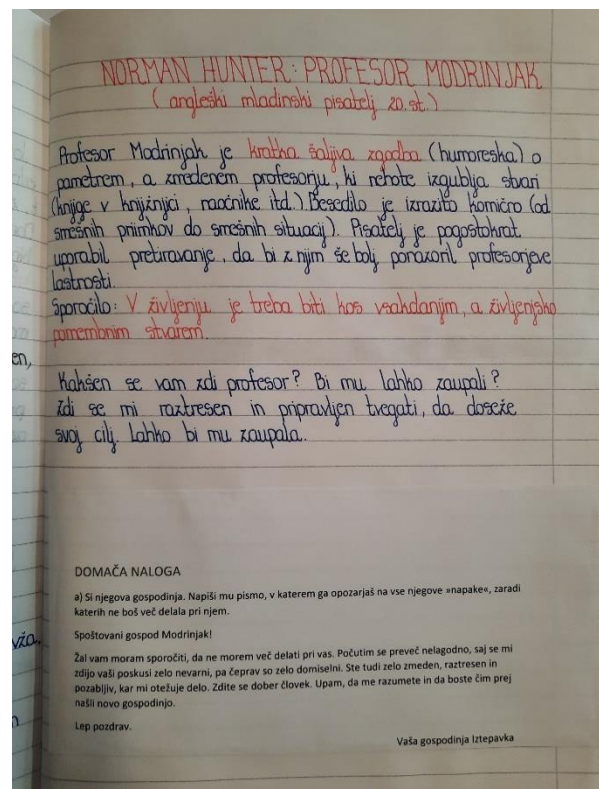 NORMAN HUNTER: PROFESOR MODRINJAK
(angleški mladinski pisatelj 20. st.)
Profesor Modrinjak je kratka šaljiva zgodba (humoreska) o
pametnem, a zmedenem profesorju, ki nehote izgublja stvari
(knjige v knjižnjici, naočnike itd.) Besedilo je izrazito komično (od
smešnih priimkov do smešnih situacij). Pisatelj je pogostokrat
uporabil pretiravanje, da bi z njim še bolj ponazoril profesorjeve
lastnosti.
Sporočilo: V življenju je treba biti kos vsakdanjim, a življenjsko
pomembnim stvarem.
en,
Kakšen se vam zdi profesor? Bi mu lahko zaupali?
Zdi se mi raztresen in pripravljen tvegati, da doseže
svoj cilj. Lahko bi mu zaupala.
DOMAČA NALOGA
a) Si njegova gospodinja. Napiši mu pismo, v katerem ga opozarjaš na vse njegove »napake«, zaradi
katerih ne boš več delala pri njem.
Spoštovani gospod Modrinjak!
vža.
Žal vam moram sporočiti, da ne morem več delati pri vas. Počutim se preveč nelagodno, saj se mi
zdijo vaši poskusi zelo nevarni, pa čeprav so zelo domiselni. Ste tudi zelo zmeden, raztresen in
pozabljiv, kar mi otežuje delo. Zdite se dober človek. Upam, da me razumete in da boste čim prej
našli novo gospodinjo.
Lep pozdrav.
Vaša gospodinja Iztepavka